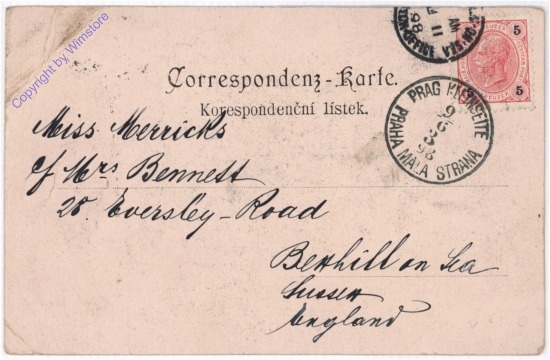 Copyright by Wimstore
Correspondenz-Karte.
Korespondenční lístek.
5
5
KREUZER
PRAG KLEINSEITE
9
3
98
PRAHA MALÁ STRANA
AM
AP 11
98
Miss Merricks
c/ Mrs Bennett
28. Eversley-Road
Bexhill on Sea
Sussex
England